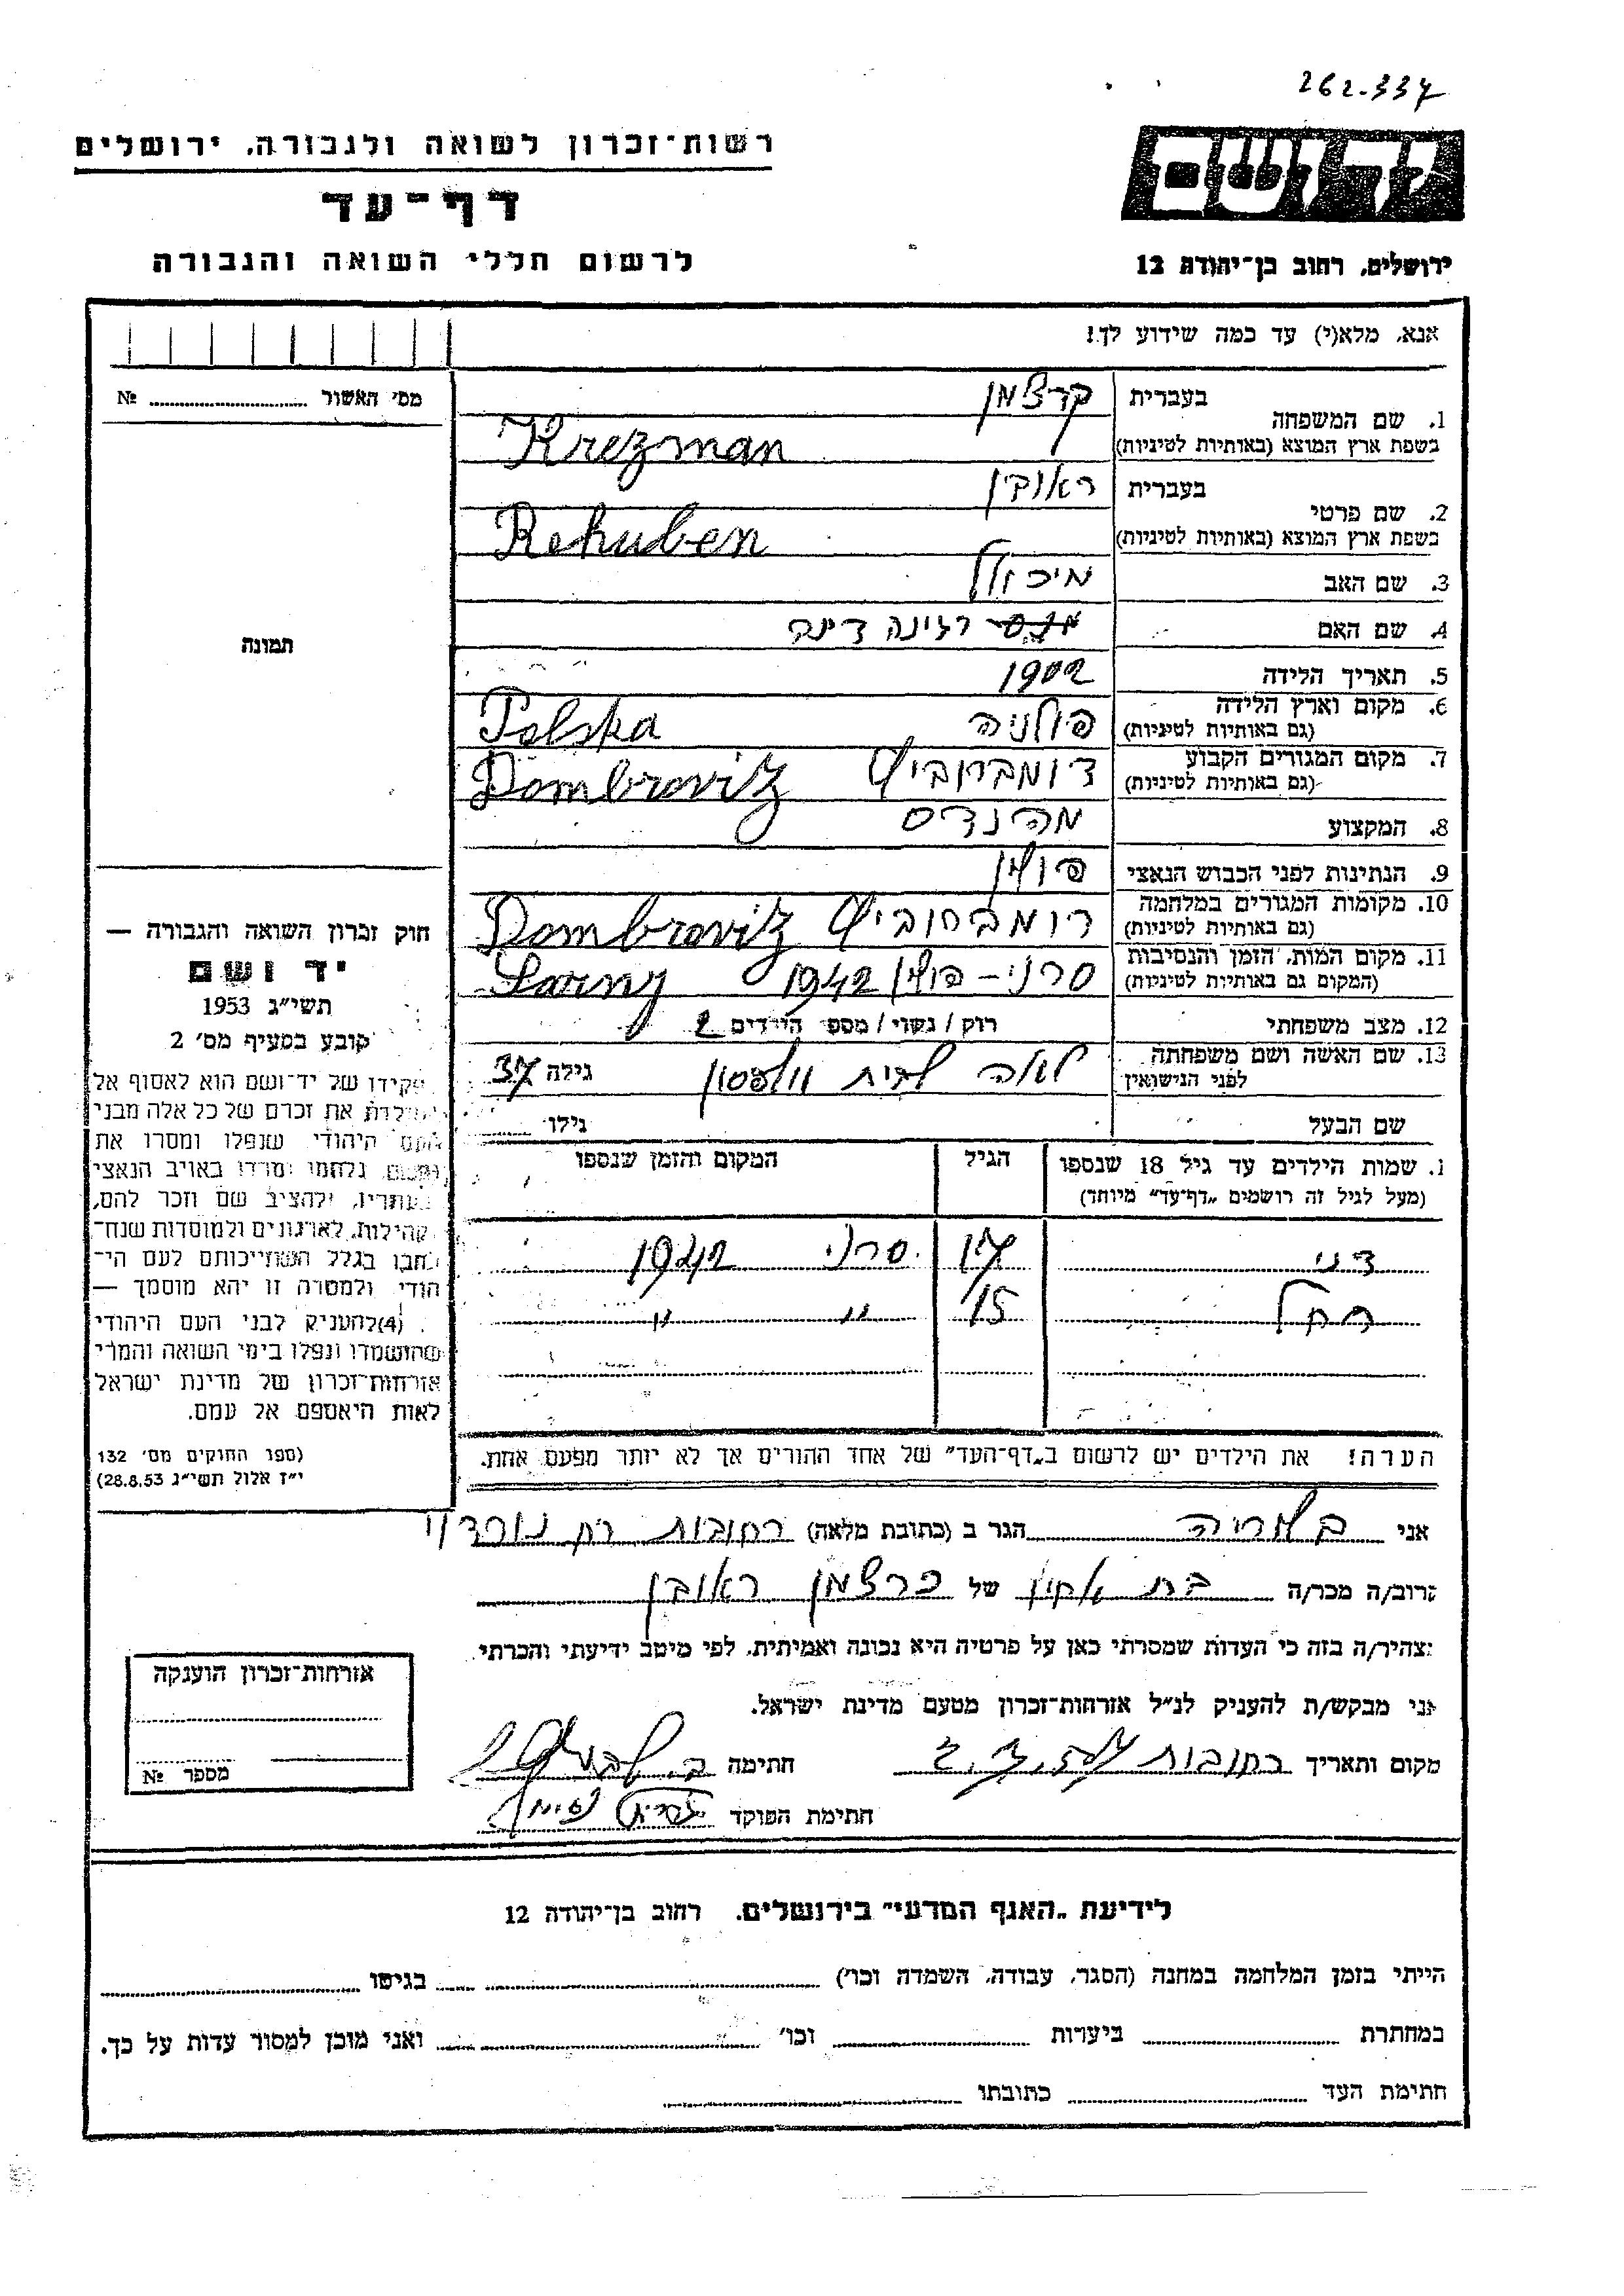 262.337
רשות־זכרון לשואה ולגבורה, ירושלים
יד ושם
דף־עד
לרשום חללי השואה והגבורה
ירושלים, רחוב בן־יהודה 12
אנא, מלא(י) עד כמה שידוע לך!
מס' האשור № 
בעברית קרצמן
1. שם המשפחה
בשפת ארץ המוצא (באותיות לטיניות) Krezman
בעברית ראובן
2. שם פרטי
בשפת ארץ המוצא (באותיות לטיניות) Rehuben
3. שם האב מיכאל
4. שם האם רגינה דינה
תמונה
5. תאריך הלידה 1902
6. מקום וארץ הלידה
(גם באותיות לטיניות) פולניה Polska
7. מקום המגורים הקבוע
(גם באותיות לטיניות) דומברוביץ Dombroviz
8. המקצוע מהנדס
9. הנתינות לפני הכבוש הנאצי פולין
10. מקומות המגורים במלחמה
(גם באותיות לטיניות) דומברוביץ Dombroviz
11. מקום המות, הזמן והנסיבות
(המקום גם באותיות לטיניות) סרני - פולין 1942 Sarny
12. מצב משפחתי רווק/נשוי/מספר הילדים 2
13. שם האשה ושם משפחתה
לפני הנישואין לאה לבית וולפסון גילה 37
שם הבעל גילו
חוק זכרון השואה והגבורה —
יד ושם
תשי״ג 1953
קובע בסעיף מס' 2
תפקידו של יד־ושם הוא לאסוף אל
המולדת את זכרם של כל אלה מבני
העם היהודי שנפלו ומסרו את
נפשם, נלחמו ומרדו באויב הנאצי
ובעוזריו, ולהציב שם וזכר להם,
לקהילות, לארגונים ולמוסדות שנח־
רבו בגלל השתייכותם לעם הי־
הודי ולמטרה זו יהא מוסמך —
(4) להעניק לבני העם היהודי
שהושמדו ונפלו בימי השואה והמרי
אזרחות־זכרון של מדינת ישראל
לאות היאספם אל עמם.
(ספר החוקים מס' 132
י״ז אלול תשי״ג 28.8.53)
1. שמות הילדים עד גיל 18 שנספו הגיל המקום והזמן שנספו
(מעל לגיל זה רושמים „דף־עד״ מיוחד)
דני 17 סרני 1942
רחל 15 " "
הערה! את הילדים יש לרשום ב„דף־העד״ של אחד ההורים אך לא יותר מפעם אחת.
אני הגר ב (כתובת מלאה) רחובות
קרוב/ה מכר/ה בת של קרצמן ראובן
מצהיר/ה בזה כי העדות שמסרתי כאן על פרטיה היא נכונה ואמיתית, לפי מיטב ידיעתי והכרתי.
אני מבקש/ת להעניק לנ״ל אזרחות־זכרון מטעם מדינת ישראל.
מקום ותאריך רחובות חתימה
חתימת הפוקד
אזרחות־זכרון הוענקה
מספר №
לידיעת „האגף המדעי״ בירושלים, רחוב בן־יהודה 12
הייתי בזמן המלחמה במחנה (הסגר, עבודה, השמדה וכו') בגיטו
במחתרת ביערות וכו' ואני מוכן למסור עדות על כך.
חתימת העד כתובתו